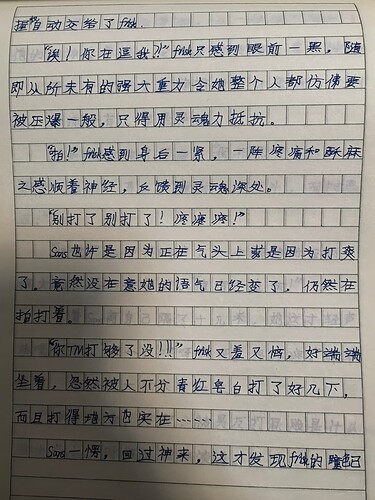 自动交给了frisk.
"诶！你在逗我?!"frisk只感到眼前一黑，随
即从所未有的强大重力令她整个人都仿佛要
被压爆一般，只得用灵魂力抵抗。
"拍！"frisk感到身后一紧，一阵疼痛和酥麻
之感顺着神经，反馈到灵魂深处。
"别打了别打了！疼疼疼！"
Sans也许是因为正在气头上或是因为打爽
了。竟然没在意她的语气已经变了，仍然在
拍打着。
"你TM打够了没!!!"frisk又羞又恼，好端端
坐着，忽然被人不分青红皂白打了好几下，
而且打得地方也实在……
Sans一愣，回过神来，这才发现frisk的瞳色已